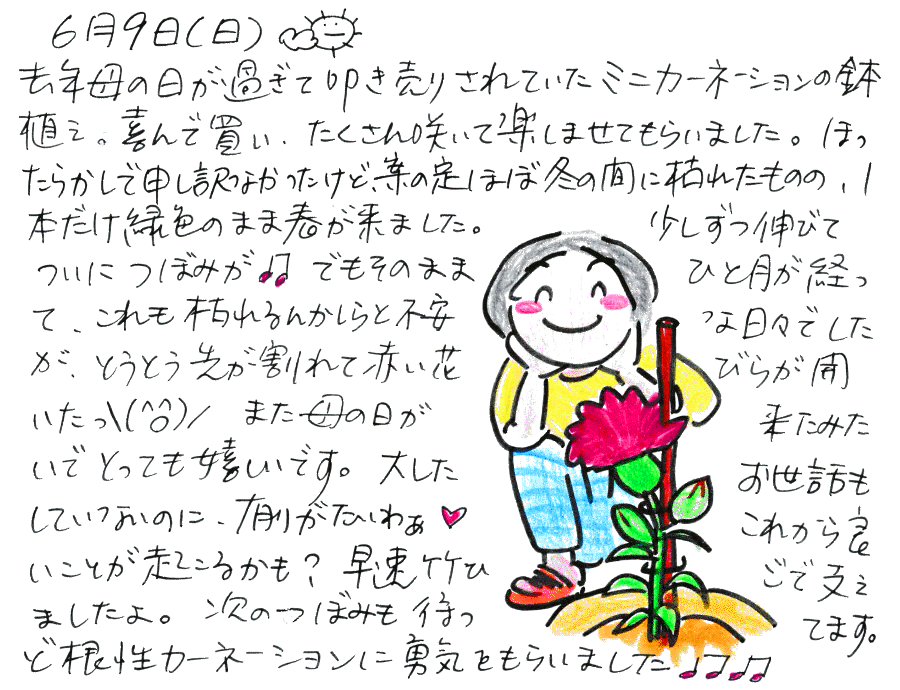 6月9日(日)
去年母の日が過ぎて叩き売りされていたミニカーネーションの鉢
植え。喜んで買い、たくさん咲いて楽しませてもらいました。ほっ
たらかしで申し訳なかったけど、案の定ほぼ冬の間に枯れたものの、1
本だけ緑色のまま春が来ました。 少しずつ伸びて
ついにつぼみが♫ でもそのまま ひと月が経っ
て、これも枯れるんかしらと不安 な日々でした
が、とうとう先が割れて赤い花 びらが開
いたっ\(^O^)/ また母の日が 来たみた
いでとっても嬉しいです。大した お世話も
していないのに、有りがたいわぁ♥ これから良
いことが起こるかも?早速竹ひ ごで支え
ましたよ。次のつぼみも待っ てます。
ど根性カーネーションに勇気をもらいました♪♫♫